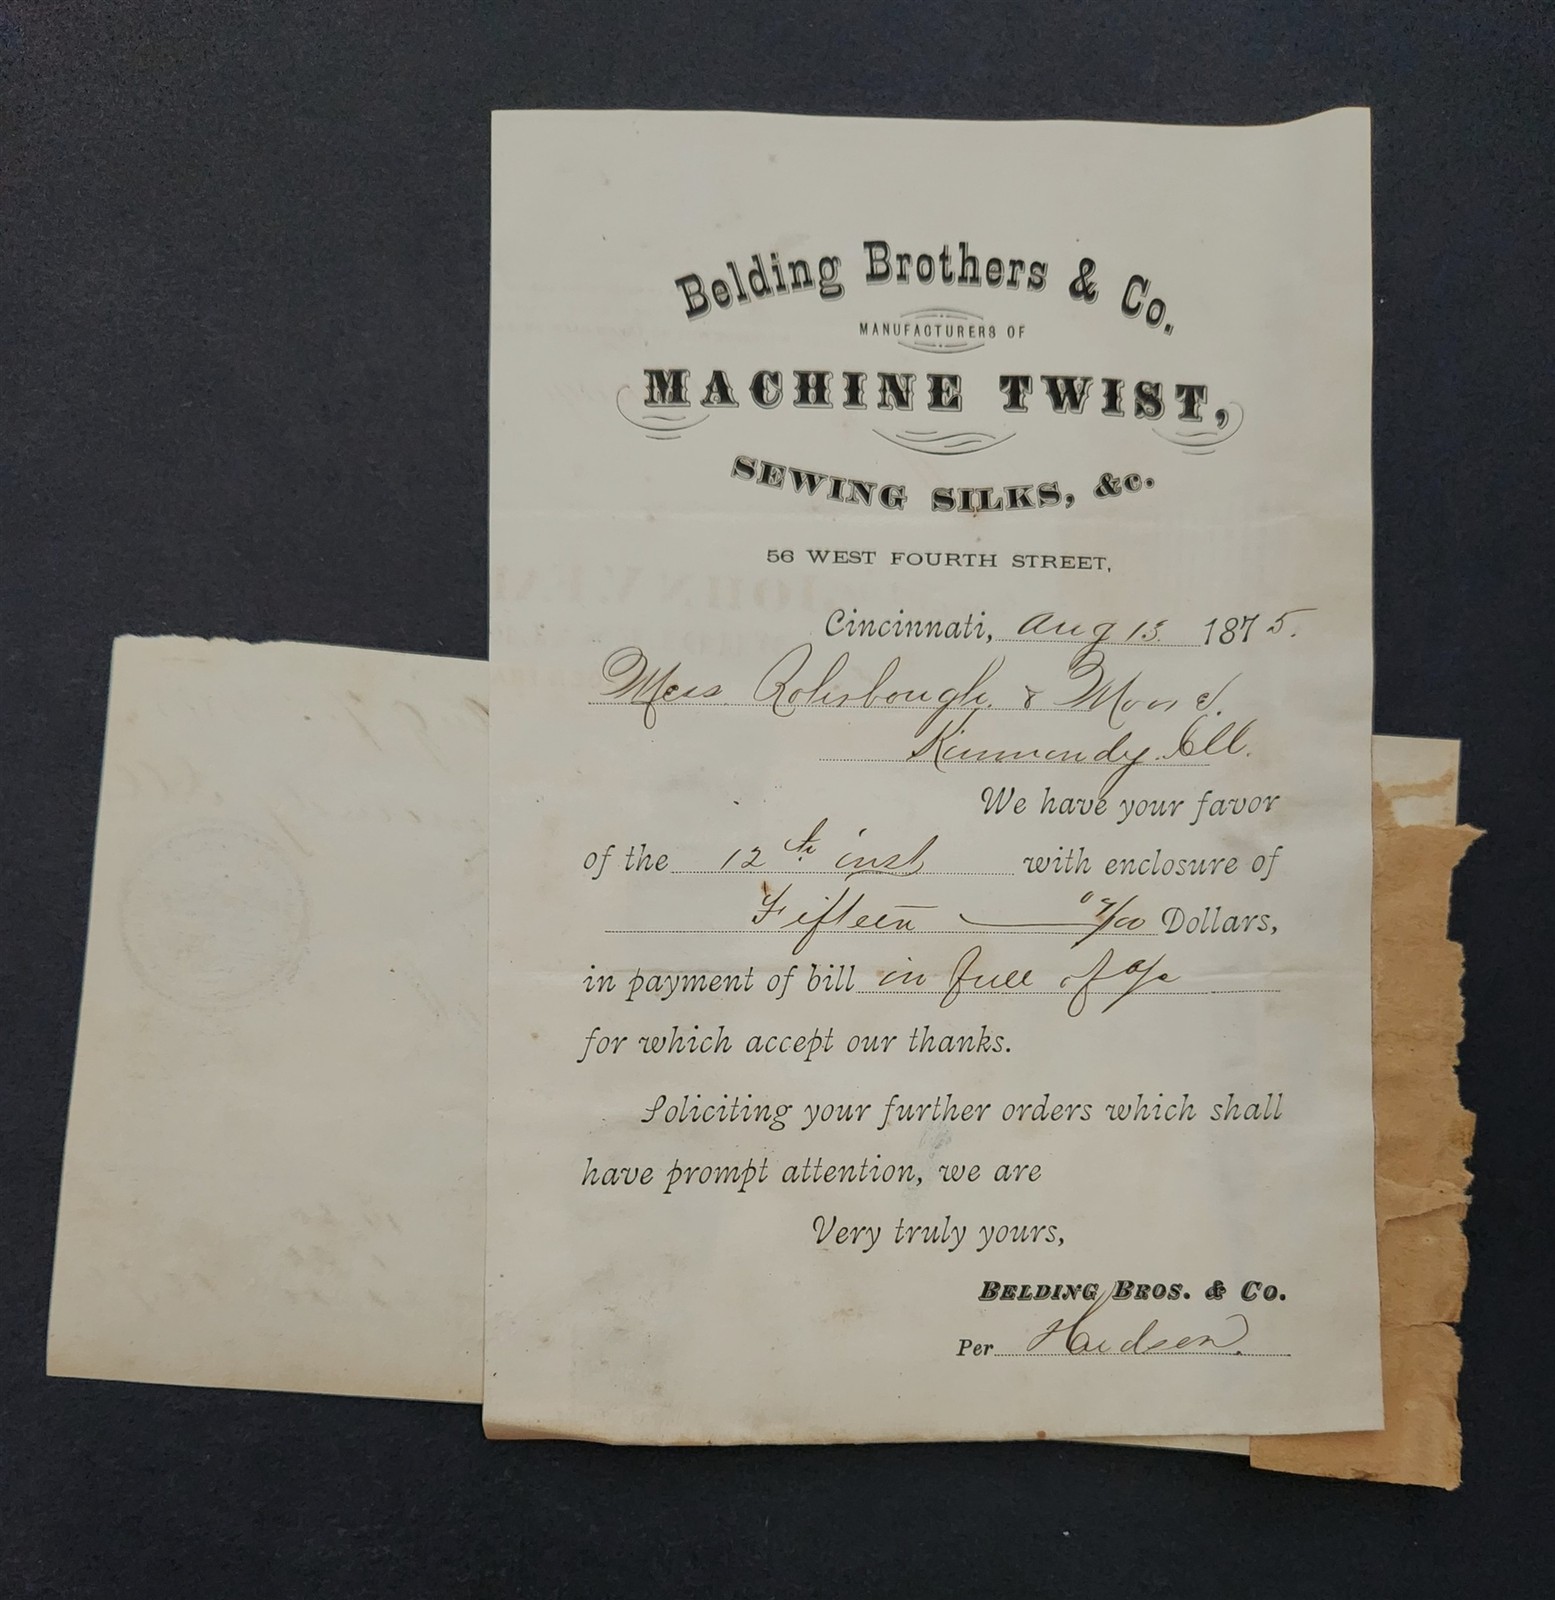 Belding Brothers & Co.
MANUFACTURERS OF
MACHINE TWIST,
SEWING SILKS, &c.
56 WEST FOURTH STREET,
Cincinnati, Aug 13. 1875.
Mess. Rohrbough & Moore.
Kinmundy Ill.
We have your favor
of the 12th inst with enclosure of
Fifteen 07/100 Dollars,
in payment of bill in full of a/c
for which accept our thanks.
Soliciting your further orders which shall
have prompt attention, we are
Very truly yours,
BELDING BROS. & CO.
Per Hudson.